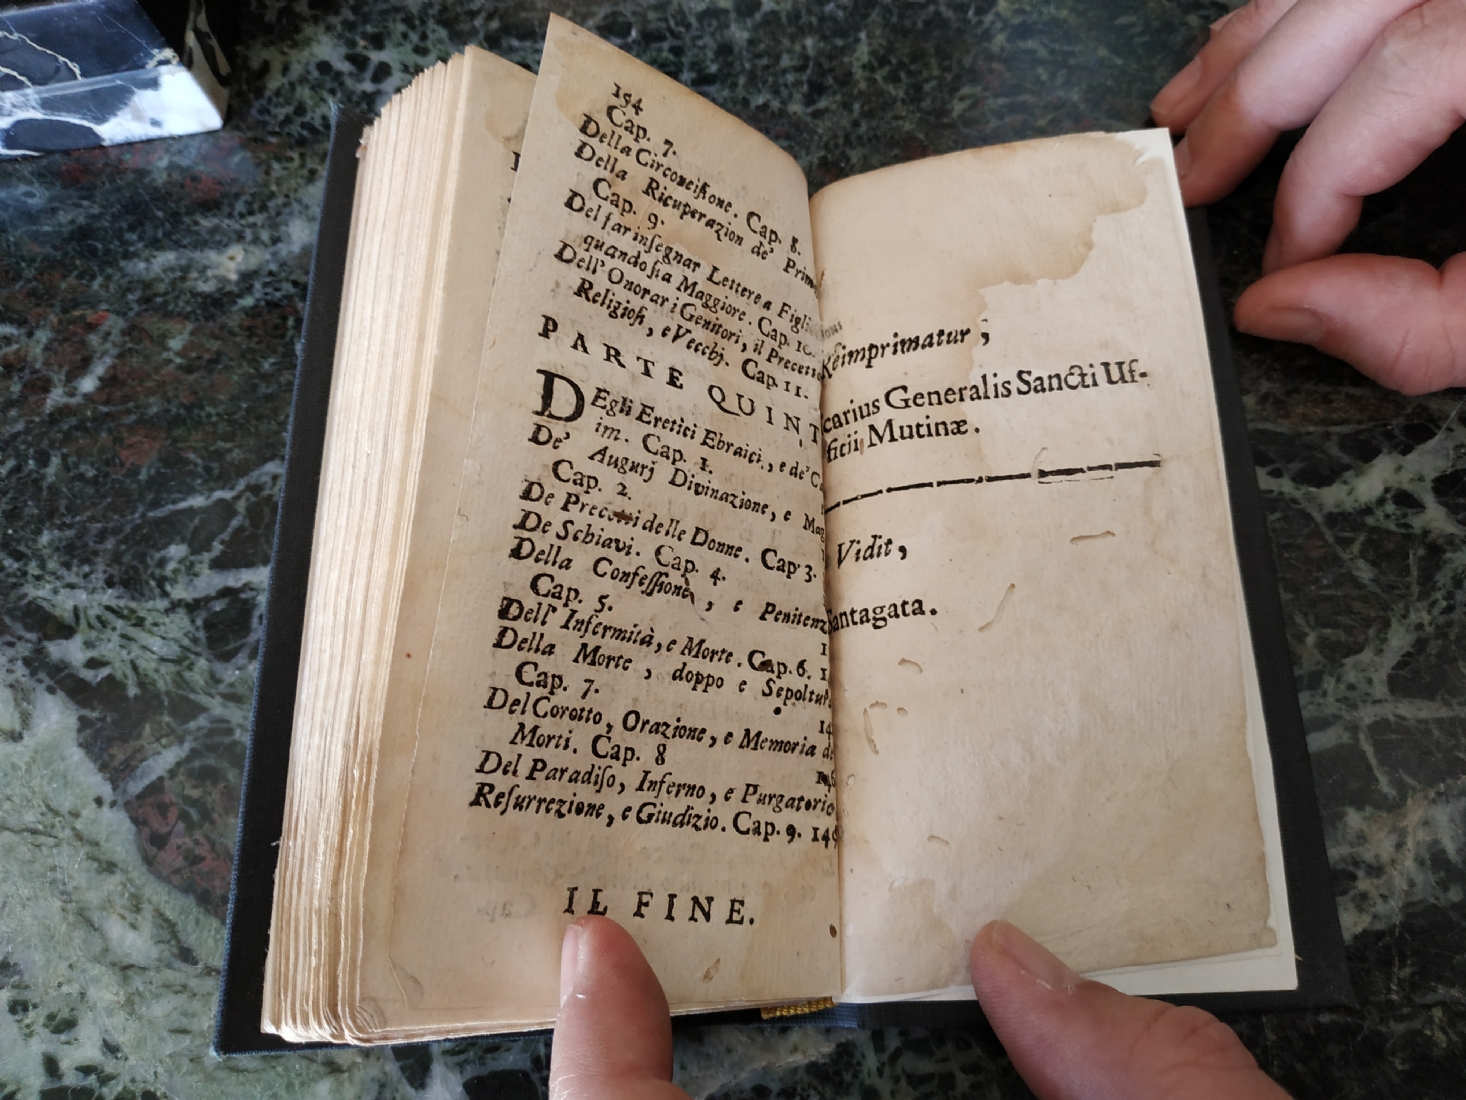 154
Cap. 7.
Della Circonciſione. Cap. 8.
Della Ricuperazion de' Prim
Cap. 9.
Del far inſegnar Lettere a Figli
quando ſia Maggiore. Cap. 10.
Dell' Onorar i Genitori, il Precett
Religioſi, e Vecchj. Cap. 11.
PARTE QUINT
DEgli Eretici Ebraici, e de' C
im. Cap. 1.
De' Augurj Divinazione, e Mag
Cap. 2.
De Precetti delle Donne. Cap. 3.
De Schiavi. Cap. 4.
Della Confeſſione, e Penitenz
Cap. 5.
Dell' Infermità, e Morte. Cap. 6. 1
Della Morte, doppo e Sepoltur
Cap. 7. 14
Del Corotto, Orazione, e Memoria de
Morti. Cap. 8
Del Paradiſo, Inferno, e Purgatorio
Reſurrezione, e Giudizio. Cap. 9. 149
IL FINE.
Reimprimatur;
carius Generalis Sancti Uf-
ficii Mutinæ.
Vidit,
Santagata.